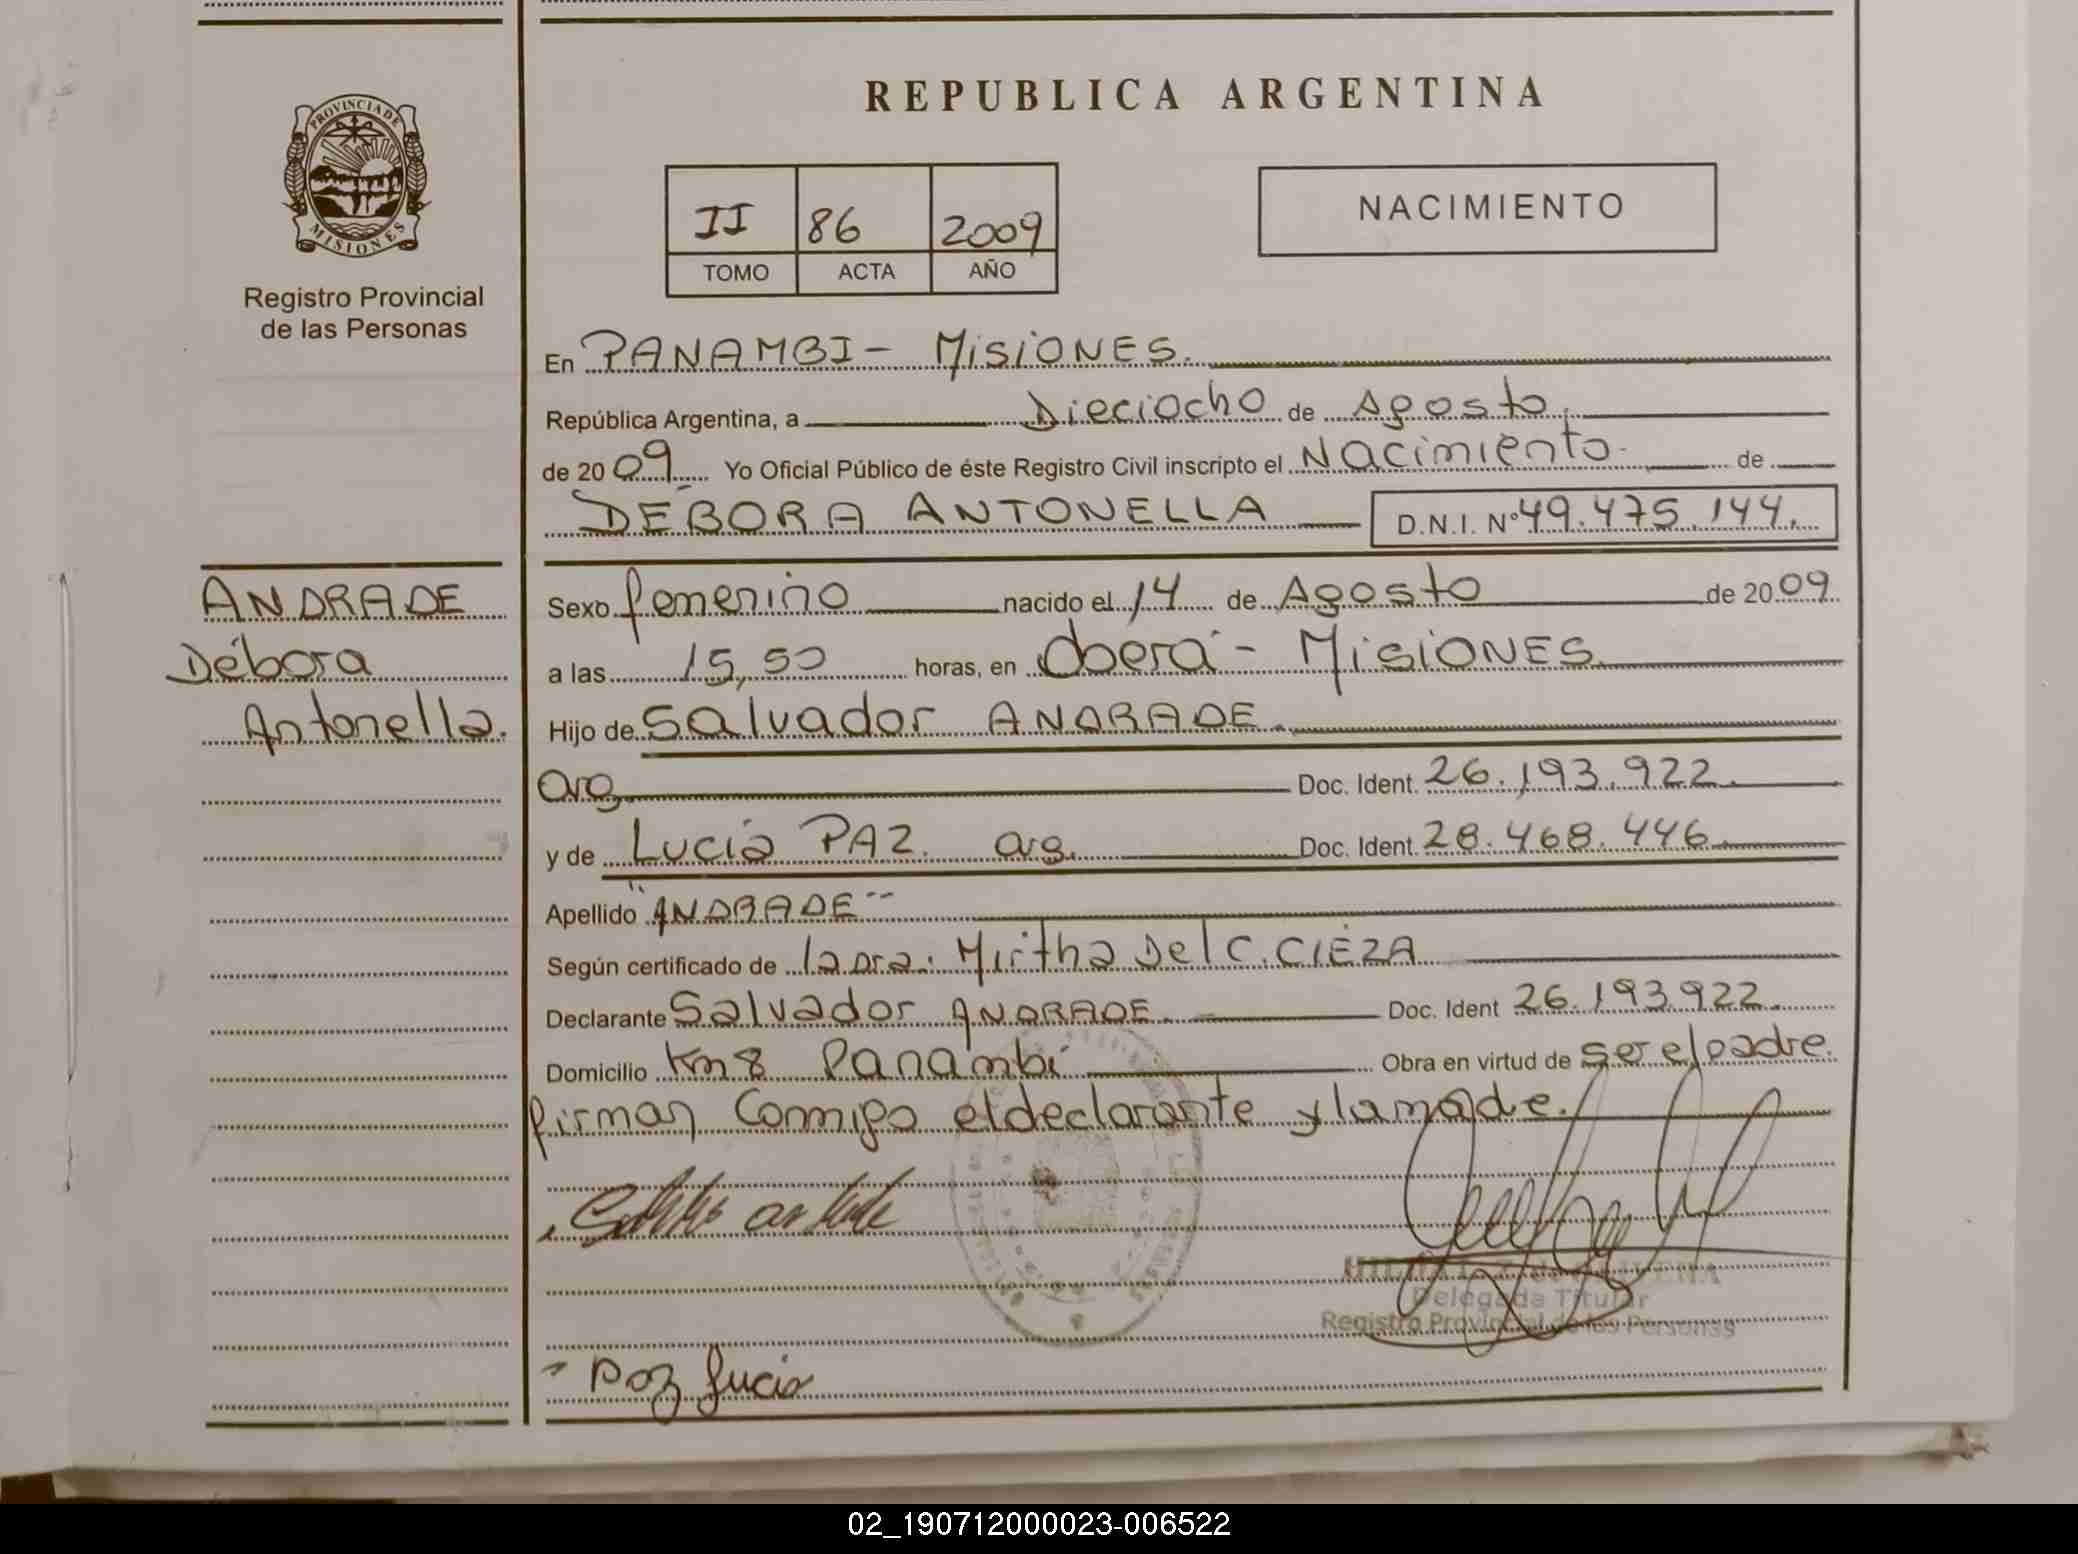 REPUBLICA ARGENTINA
PROVINCIA DE
MISIONES
Registro Provincial
de las Personas
II 86 2009
TOMO ACTA AÑO
NACIMIENTO
En PANAMBI - MISIONES.
República Argentina, a Dieciocho de Agosto.
de 2009 Yo Oficial Público de éste Registro Civil inscripto el Nacimiento. de
DÉBORA ANTONELLA D.N.I. Nº 49.475.144.
ANDRADE
Débora
Antonella.
Sexo femenino nacido el 14 de Agosto de 2009
a las 15,50 horas, en Oberá - MISIONES.
Hijo de Salvador ANDRADE.
arg. Doc. Ident. 26.193.922.
y de Lucia PAZ. arg. Doc. Ident. 28.468.446.
Apellido "ANDRADE"
Según certificado de la Dra. Mirtha Del C. CIEZA
Declarante Salvador ANDRADE. Doc. Ident 26.193.922.
Domicilio Km 8 Panambí Obra en virtud de ser el padre.
firman Conmigo el declarante y la madre.
Delegada Titular
Registro Provincial de las Personas
Paz Lucia
02_190712000023-006522